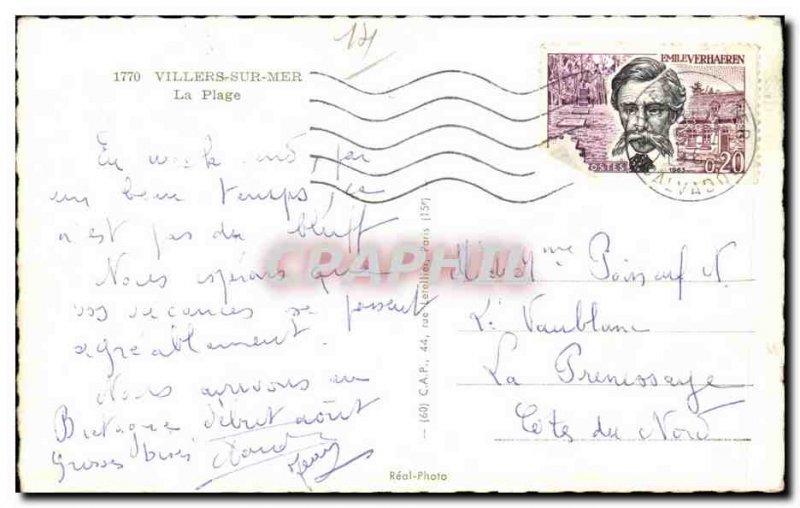 14
1770 VILLERS-SUR-MER
La Plage
EMILE VERHAEREN
POSTES
1963
0,20
CALVADOS
En week end, par
un beau temps, ce
n'est pas du bluff
Nous espérons que
vos vacances se passent
agréablement.
Nous arrivons en
Bretagne début août
Grosses bises
CPAPHIL
— (60) C.A.P., 44, rue Letellier, Paris (15e)
Mr et Mme
Vaublanc
La Prenessaye
Côtes du Nord
Réal-Photo